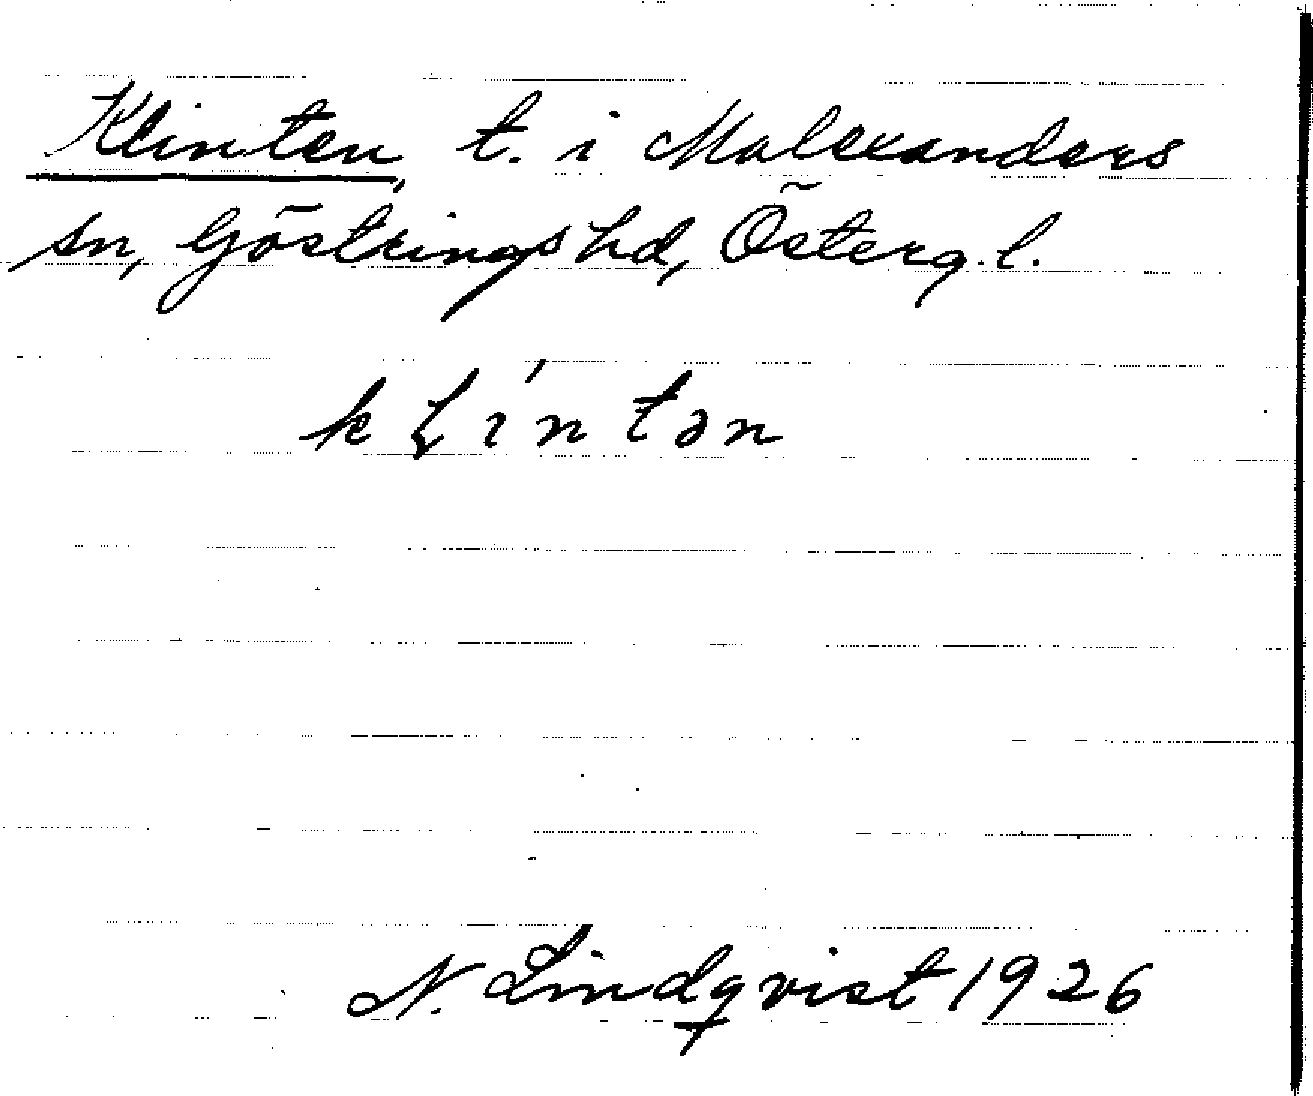 Klinten, t. i Malexanders
sn, Göstrings hd, Österg. l.
kɫíntən
N. Lindqvist 1926